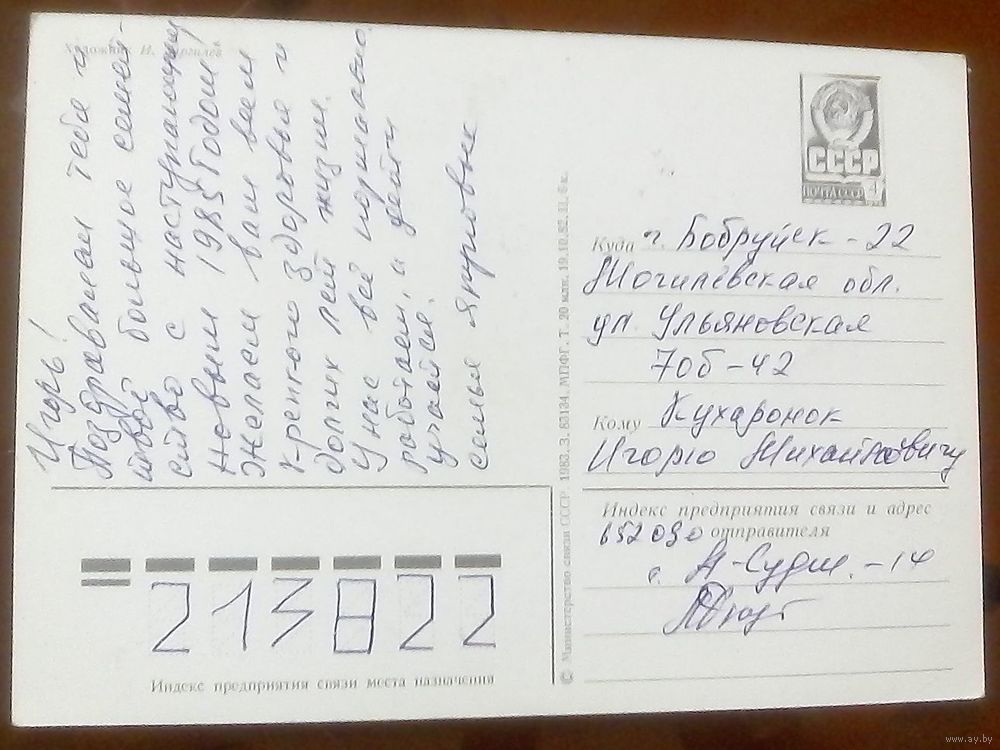 Художник И.
Игорь!
Поздравляем тебя и
твоё большое семей-
ство с наступающим
Новым 1985 Годом!
Желаем вам всем
крепкого здоровья и
долгих лет жизни.
У нас всё нормально,
работаем, и дети
учатся.
семья
СССР
ПОЧТА СССР
4
Куда г. Бобруйск - 22
Могилёвская обл.
ул. Ульяновская
70б - 42
Кому Кухаронок
Игорю Михайловичу
Индекс предприятия связи и адрес
отправителя
652090
г. А-Судж. - 14
213822
Индекс предприятия связи места назначения
© Министерство связи СССР. 1983. З. 83134. МПФГ. Т. 20 млн. 19.10.82. Ц. 6 к.
www.ay.by